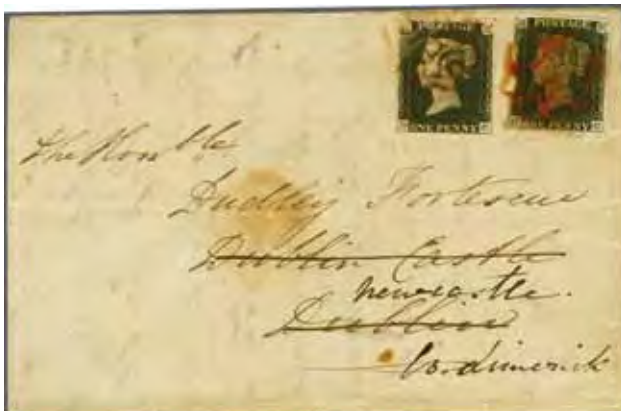 POSTAGE POSTAGE
ONE PENNY ONE PENNY
The Honble
Dudley Fortescue
Dublin Castle
Newcastle.
Dublin
Co. Limerick